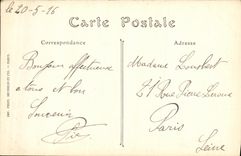 le 20-5-16
Carte Postale
Correspondance
Adresse
Bonjour affectueux
à tous et bon
Souvenir
Madame Loubert
21 Rue Pierre Leroux
Paris
Seine